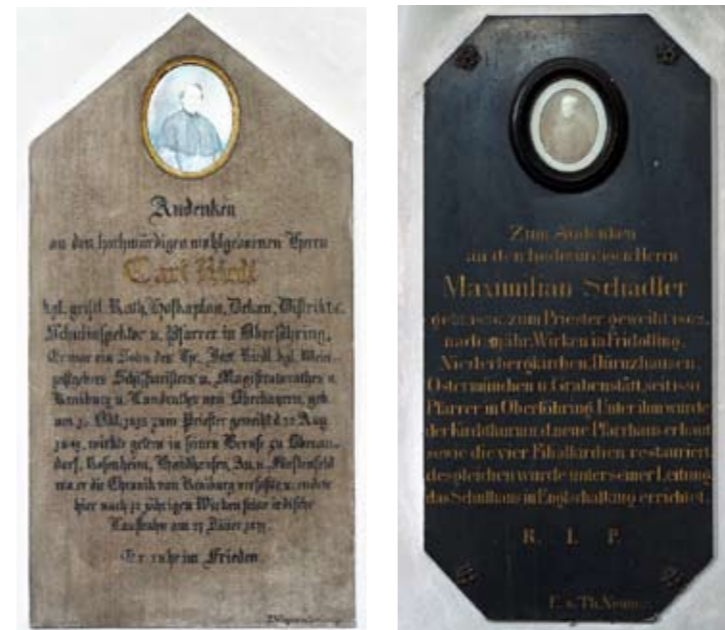 Andenken
an den hochwürdigen wohlgebornen Herrn
Carl Riedl
kgl. geistl. Rath, Hofkaplan, Dekan, Distrikts-
Schulinspektor u. Pfarrer in Oberföhring.
Er war ein Sohn des Hr. Jos. Riedl, kgl. Wein-
gastgebers Schiffmeisters u. Magistratsrathes v.
Kraiburg u. Landraths von Oberbayern, geb.
am Okt. zum Priester geweiht d. Aug.
wirkte getreu in seinem Berufe zu
dorf, Rosenheim, Haidhausen, Au, u. Fürstenfeld
wo er die Chronik von Kraiburg verfaßte u. endete
hier nach jährigen Wirken seine irdische
Laufbahn am Jäner
Er ruhe im Frieden
Zum Andenken
an den hochwürdigen Herrn
Maximilian Schadler
geb. zum Priester geweiht
nach Wirken in Fridolfing,
Niederbergkirchen, Hürnzhausen,
Ostermünchen u. Grabenstätt, seit
Pfarrer in Oberföhring. Unter ihm wurde
der Kirchthurm u. d. neue Pfarrhaus erbaut
sowie die vier Filialkirchen restauriert,
desgleichen wurde unter seiner Leitung
das Schulhaus in Englschalking errichtet.
R. I. P.